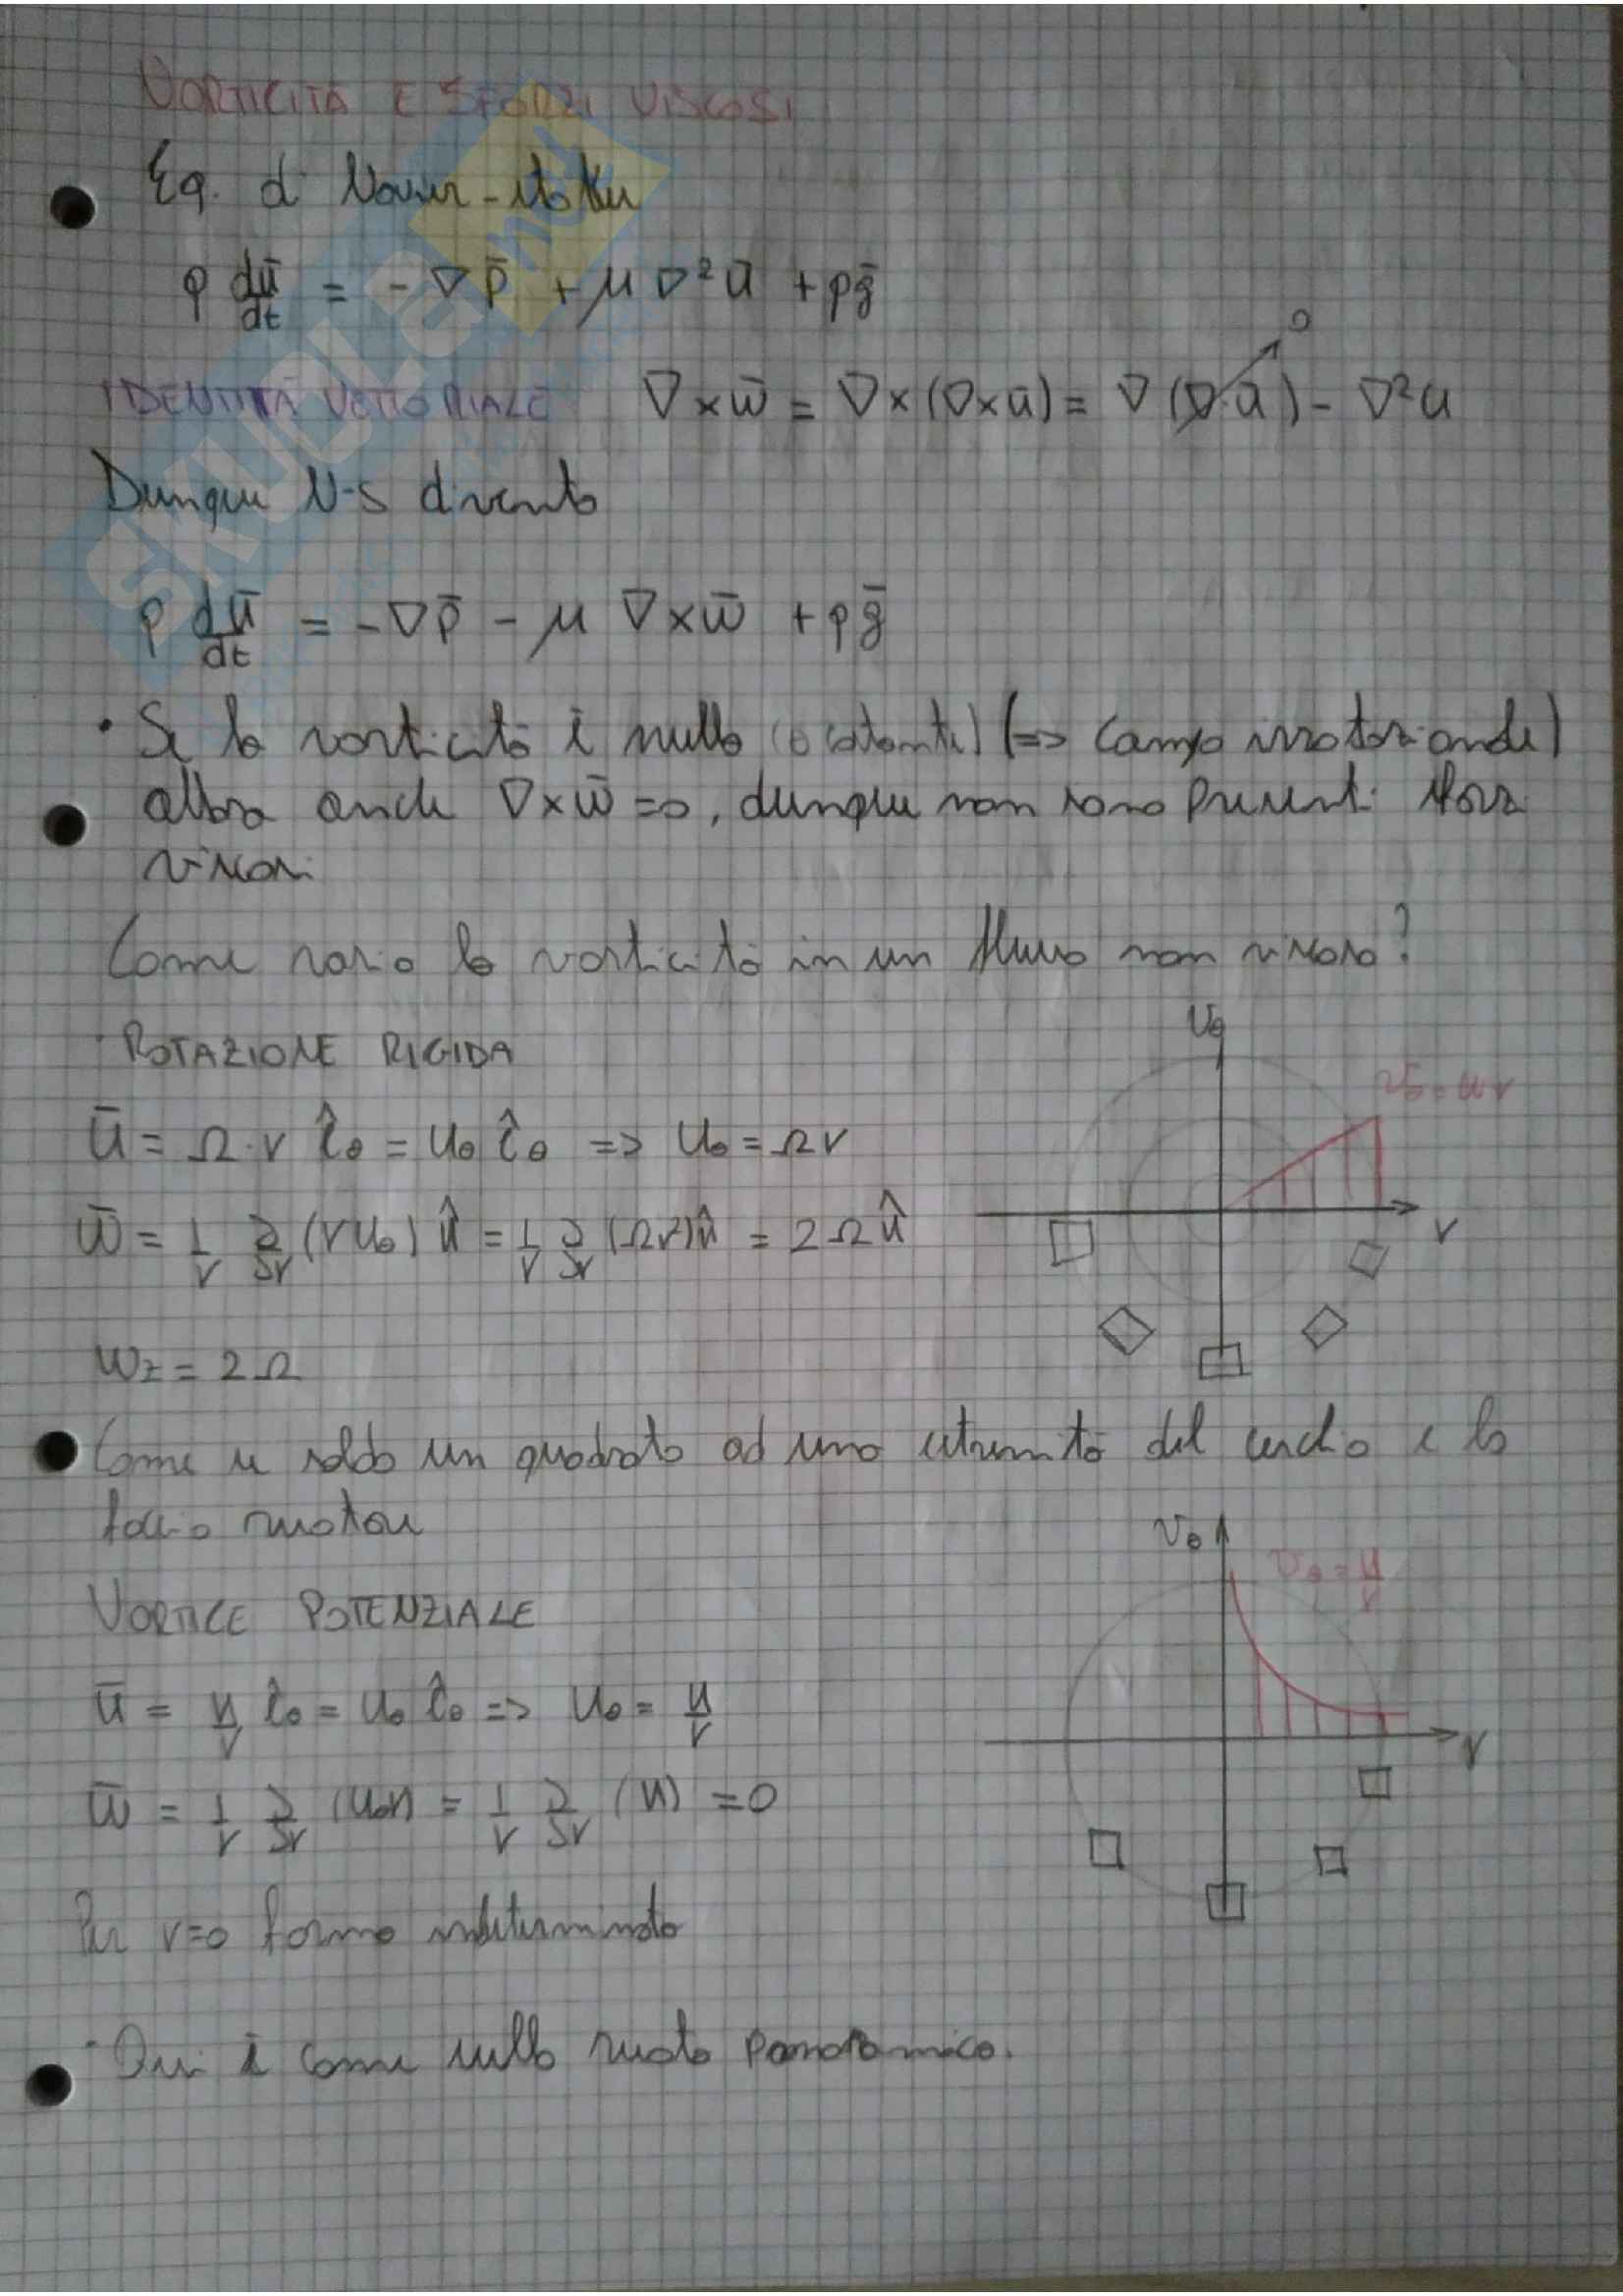 VORTICITÀ E SFORZI VISCOSI
Eq. di Navier-Stokes
ρ dū/dt = - ∇p̄ + μ∇²ū + ρḡ
IDENTITÀ VETTORIALE ∇×w̄ = ∇×(∇×ū) = ∇(∇·ū) - ∇²u
0
Dunque N-S diventa
ρ dū/dt = -∇p̄ - μ ∇×w̄ + ρḡ
· Se la vorticità è nulla (o costante) (=> Campo irrotazionale)
allora anche ∇×w̄ = 0, dunque non sono presenti sforzi
viscosi.
Come varia la vorticità in un flusso non viscoso?
· ROTAZIONE RIGIDA
ū = Ω·r îθ = uθ îθ => uθ = Ωr
w̄ = 1/r ∂/∂r (r uθ) k̂ = 1/r ∂/∂r (Ωr²) k̂ = 2Ω k̂
wz = 2Ω
vθ
vθ = wr
r
Come se saldo un quadrato ad una estremità del cerchio e lo
faccio ruotare
VORTICE POTENZIALE
ū = k/r îθ = uθ îθ => uθ = k/r
w̄ = 1/r ∂/∂r (uθr) = 1/r ∂/∂r (k) = 0
Per r=0 forma indeterminata
vθ
vθ = k/r
r
· Qui è come sulla ruota panoramica.
SKUOLA.net